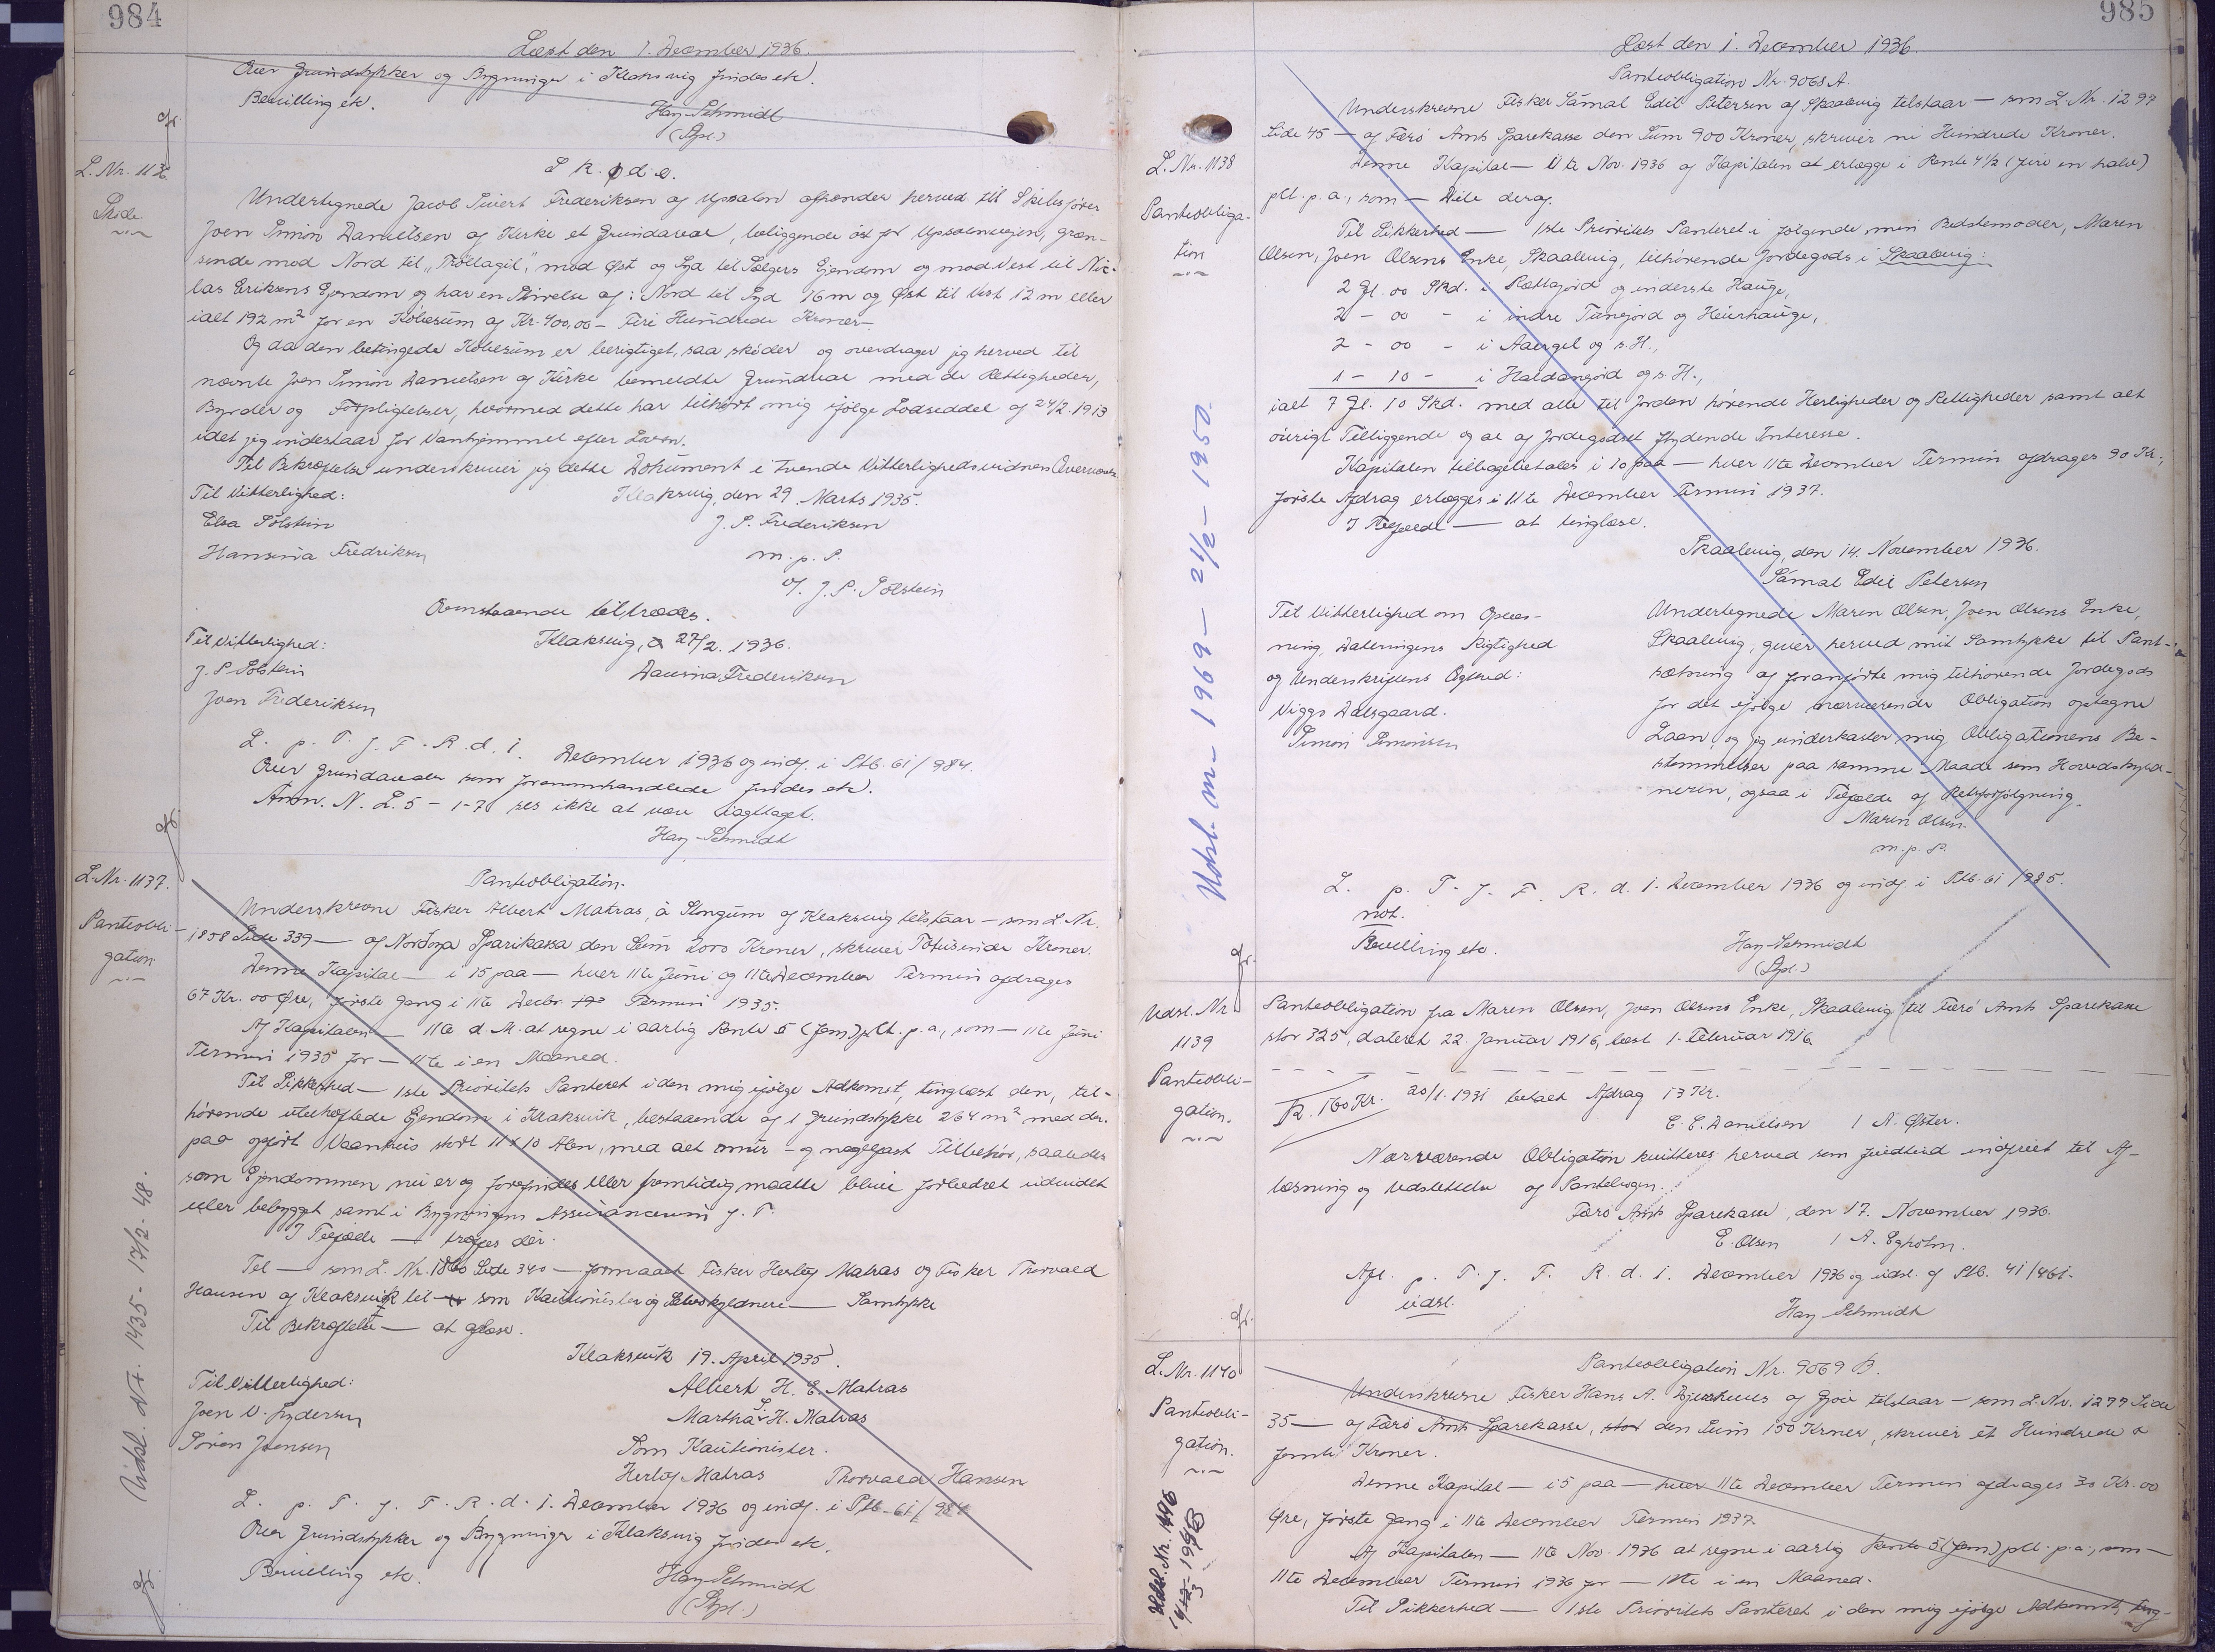 984
Læst den 1. December 1936.
Over Grundstykker og Bygninger i Klaksvig findes etc.
Bevilling etc.
Hay-Schmidt
(Spl.)
L. Nr. 1136.
Skøde
Skøde.
Undertegnede Jacob Sivert Frederiksen af Uppsalon afhænder herved til Skibsfører
Joen Simon Danielsen af Kirke et Grundareal, beliggende øst for Uppsalonvejen, græn-
sende mod Nord til "Trøllagil", mod Øst og Syd til Sælgers Ejendom og mod Vest til Nic-
las Eriksens Ejendom og har en Størrelse af: Nord til Syd 16 m og Øst til Vest 12 m eller
ialt 192 m² for en Købesum af Kr. 400,00 - Fire Hundrede Kroner-
Og da den betingede Købesum er berigtiget, saa skøder og overdrager jeg herved til
nævnte Joen Simon Danielsen af Kirke bemeldte Grundareal med de Rettigheder,
Byrder og Forpligtelser, hvormed dette har tilhørt mig ifølge Lodseddel af 24/2. 1913
idet jeg indestaar for Vanhjemmel efter Loven.
Til Bekræftelse underskriver jeg dette Dokument i tvende Vitterlighedsvidners Overværelse
Til Vitterlighed:
Klaksvig, den 29. Marts 1935.
Elsa Solstein
J. S. Frederiksen
Hansina Fredriksen
m. p. S.
v/. J. S. Solstein
Ovenstaaende tiltrædes.
Til Vitterlighed:
Klaksvig, d 27/2. 1936.
J. S. Solstein
Davina Frederiksen
Joen Frederiksen
L. p. T. f. F. R. d. 1. December 1936 og indf. i Ptb. 61/984.
Over Grundarealer som foranomhandlede findes etc.
Anm. N. L. 5 - 1-7 ses ikke at være iagttaget.
Hay-Schmidt
L. Nr. 1137.
Panteobli-
gation
Udsl. Nr. 1435 - 17/2-48.
Panteobligation.
Underskrevne Fisker Albert Matras, á Stongum af Klaksvig tilstaar - som L. Nr.
1858 Side 339 - af Norðoya Sparikassa den Sum 2000 Kroner, skriver Totusinde Kroner.
Denne Kapital - i 15 paa - hver 11te Juni og 11te December Termin afdrages
67 Kr. 00 Øre, første Gang i 11te Decbr. Termin 1935.
Af Kapitalen - 11te d. M. at regne i aarlig Rente 5 (fem) pCt. p. a., som - 11te Juni
Termin 1935 for - 11te i en Maaned.
Til Sikkerhed - 1ste Prioritets Panteret i den mig ifølge Adkomst, tinglæst den, til-
hørende ubehæftede Ejendom i Klaksvik, bestaaende af 1 Grundstykke 264 m² med der-
paa opført Vaanhus stort 11 x 10 Alen, med alt mur - og nagelfast Tilbehør, saaledes
som Ejendommen nu er og forefindes eller fremtidig maatte blive forbedret udvidet
eller bebygget samt i Bygningens Assurancesum f. T.
I Tilfælde - træffes der.
Til - som L. Nr. 1860 Side 340 - formaaet Fisker Herluf Matras og Fisker Thorvald
Hansen af Klaksvik til - som Kautionister og Selvskyldnere - Samtykke
Til Bekræftelse - at aflæse.
Klaksvik 19. April 1935.
Til Vitterlighed:
Albert H. E. Matras
Joen D. Lydersen
Martha L. H. Matras
Søren Joensen
Som Kautionister.
Herluf Matras Thorvald Hansen
L. p. T. f. F. R. d. 1. December 1936 og indf. i Ptb. 61/984
Over Grundstykker og Bygninger i Klaksvig findes etc.
Bevilling etc.
Hay-Schmidt
(Spl.)
985
Læst den 1. December 1936.
L. Nr. 1138
Panteobliga-
tion
Udsl. nr. 1969 - 21/2 - 1950.
Panteobligation Nr. 9068 A.
Underskrevne Fisker Sámal Edil Petersen af Skaalevig tilstaar - som L. Nr. 1299
Side 45 - af Færø Amts Sparekasse den Sum 900 Kroner, skriver ni Hundrede Kroner.
Denne Kapital - 11te Nov. 1936 af Kapitalen at erlægge i Rente 4 1/2 (fire en halv)
pCt. p. a., som - Dele deraf.
Til Sikkerhed - 1ste Prioritets Panteret i følgende min Bedstemoder, Maren
Olsen, Joen Olsens Enke, Skaalevig, tilhørende Jordegods i Skaalevig:
2 Gl. 00 Skd. i Slettagjord og inderste Hauge,
2 - 00 - i indre Tunejord og Heierhauge,
2 - 00 - i Aargil og s. H.,
1 - 10 - i Haldangjord og s. H.,
ialt 7 Gl. 10 Skd. med alle til Jorden hørende Herligheder og Rettigheder samt alt
øvrigt Tilliggende og al af Jordegodset flydende Interesse.
Kapitalen tilbagebetales i 10 paa - hver 11te December Termin afdrages 90 Kr.,
første Afdrag erlægges i 11te December Termin 1937.
I Tilfælde - at tinglæse.
Skaalevig, den 14. November 1936.
Sámal Edil Petersen
Til Vitterlighed om Oplæs-
ning, Dateringens Rigtighed
og Underskriftens Ægthed:
Viggo Dalsgaard.
Simon Simonsen
Undertegnede Maren Olsen, Joen Olsens Enke,
Skaalevig, giver herved mit Samtykke til Pant-
sætning af foranførte mig tilhørende Jordegods
for det ifølge nærværende Obligation optagne
Laan, og jeg underkaster mig Obligationens Be-
stemmelser paa samme Maade som Hovedskyld-
neren, ogsaa i Tilfælde af Retsforfølgning.
Maren Olsen.
m. p. S.
L. p. T. f. F. R. d. 1. December 1936 og indf. i Ptb. 61/985.
not.
Bevilling etc.
Hay-Schmidt
(Spl.)
Udsl. Nr.
1139
Panteobli-
gation.
Panteobligation fra Maren Olsen, Joen Olsens Enke, Skaalevig til Færø Amts Sparekasse
stor 325, dateret 22. Januar 1916, læst 1. Februar 1916
R. 160 Kr. 20/1. 1931 betalt Afdrag 13 Kr.
E. E. Danielsen / A. Øster.
Nærværende Obligation kvitteres herved som fuldtud indfriet til Af-
læsning og Udslettelse af Pantebogen.
Færø Amts Sparekasse, den 17. November 1936.
E. Olsen / A. Egholm.
Afl. p. T. f. F. R. d. 1. December 1936 og udsl. af Ptb. 41/461.
udsl.
Hay-Schmidt
L. Nr. 1140
Panteobli-
gation.
Panteobligation Nr. 9069 B.
Underskrevne Fisker Hans A. Bjerkhus af Gjov tilstaar - som L. Nr. 1299 Side
35 - af Færø Amts Sparekasse, den Sum 150 Kroner, skriver ét Hundrede
femti Kroner.
Denne Kapital - i 5 paa - hver 11te December Termin afdrages 30 Kr. 00
Øre, første Gang i 11te December Termin 1937.
Af Kapitalen - 11te Nov. 1936 at regne i aarlig Rente 5 (fem) pCt. p. a., som -
11te December Termin 1936 for - 11te i en Maaned.
Til Sikkerhed - 1ste Prioritets Panteret i den mig ifølge Adkomst, ting-